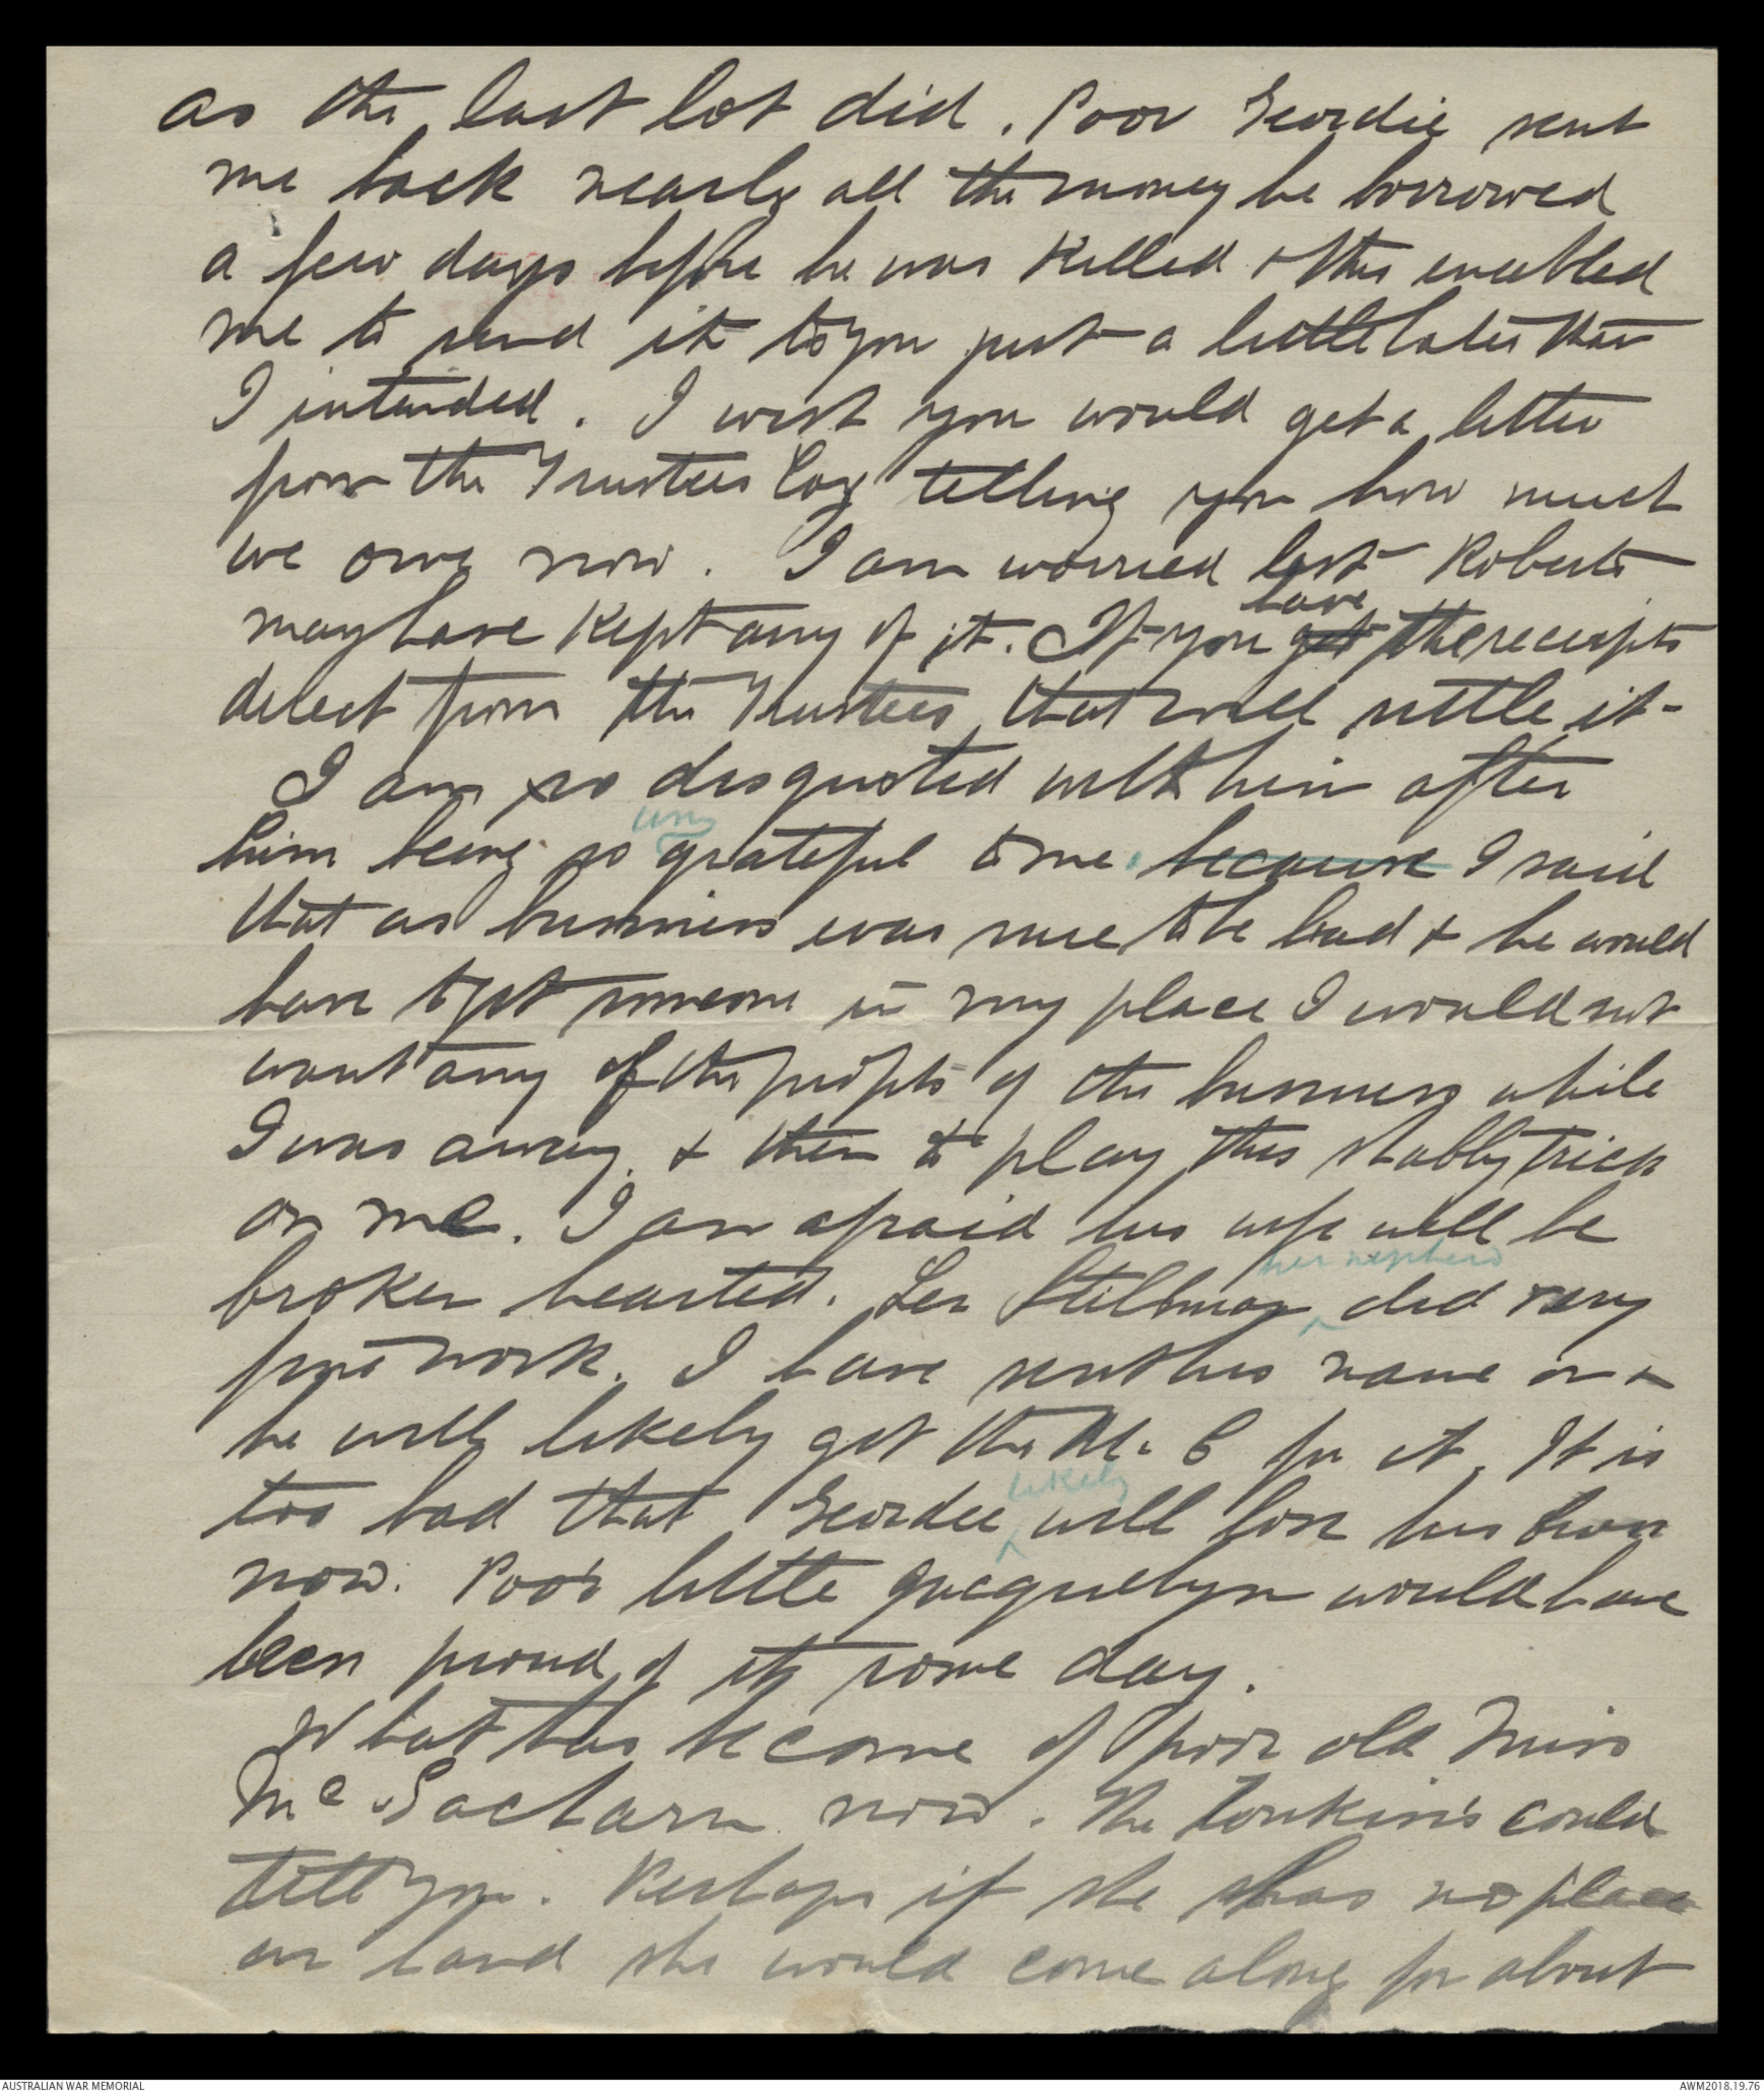 as the last lot did. Poor Geordie sent
me back nearly all the money he borrowed
a few days before he was killed & this enabled
me to send it to you just a little later than
I intended. I wish you would get a letter
from the Trustees Coy telling you how much
we owe now. I am worried lest Roberts
may have kept any of it. If you get have the receipts
direct from the Trustees that will settle it -
I am so disgusted with him after
him being so ung grateful to me. because I said
that as business was sure to be bad & he would
have to get someone in my place I would not
want any of the profits of the business while
I was away. & then to play this shabby trick
on me. I am afraid his wife will be
broken hearted. Les Stillman her nephew did very
fine work. I have sent his name on &
he will likely get the M. C for it. It is
too bad that Geordie likely will lose his
now. Poor little Jacquelyn would have
been proud of it some day.
What has become of poor old Miss
McEacharn now. The Tonkin's could
tell you. Perhaps if she has no place
on hand she would come along for about
AUSTRALIAN WAR MEMORIAL
AWM2018.19.76